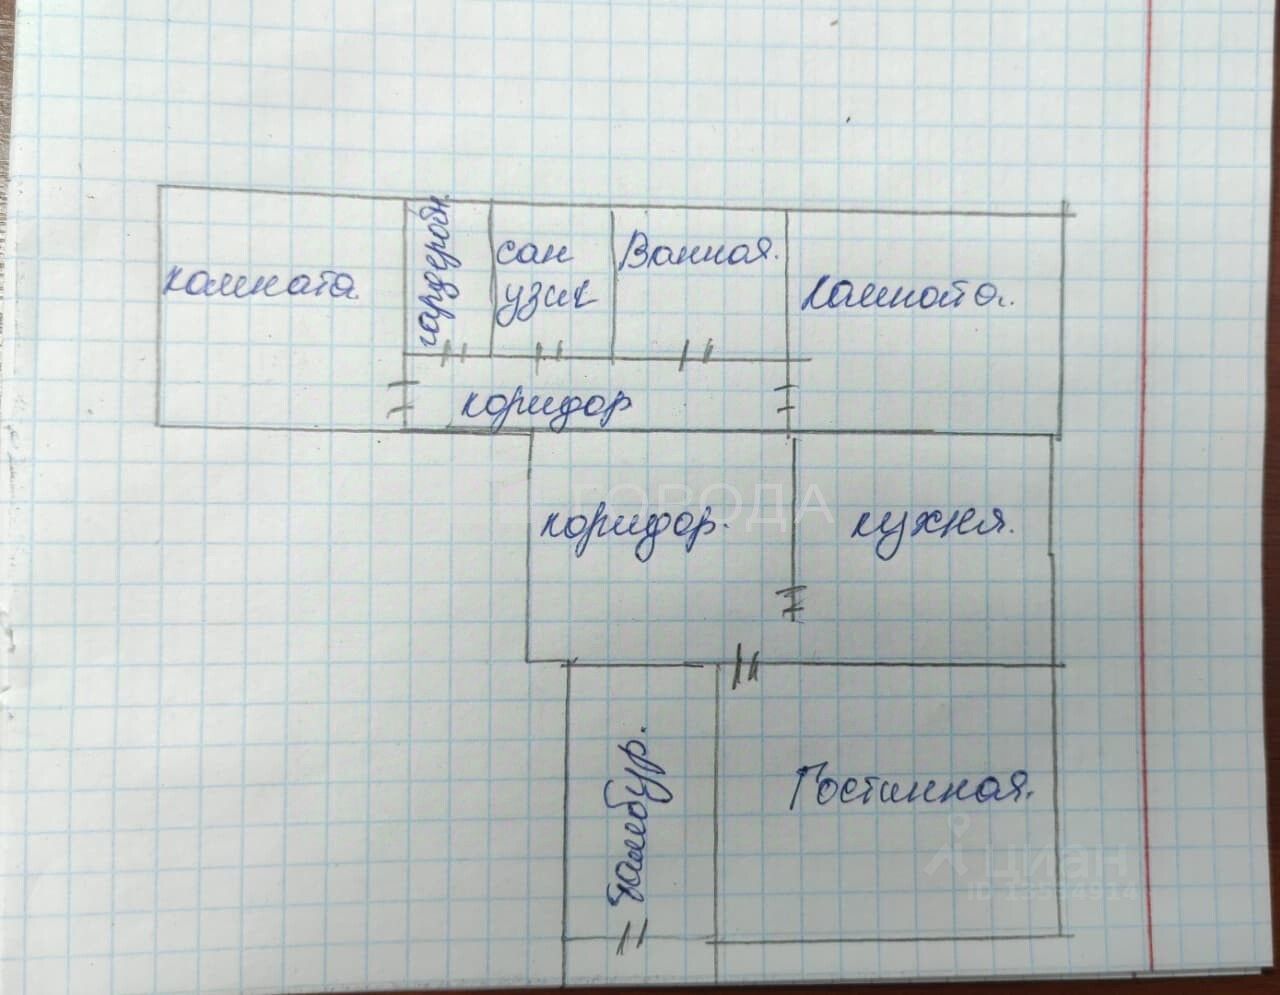 комната
гардеробн.
сан
узик
Ванная.
комната.
коридор
ГОВОДА
коридор.
кухня.
тамбур.
Гостинная.
циан